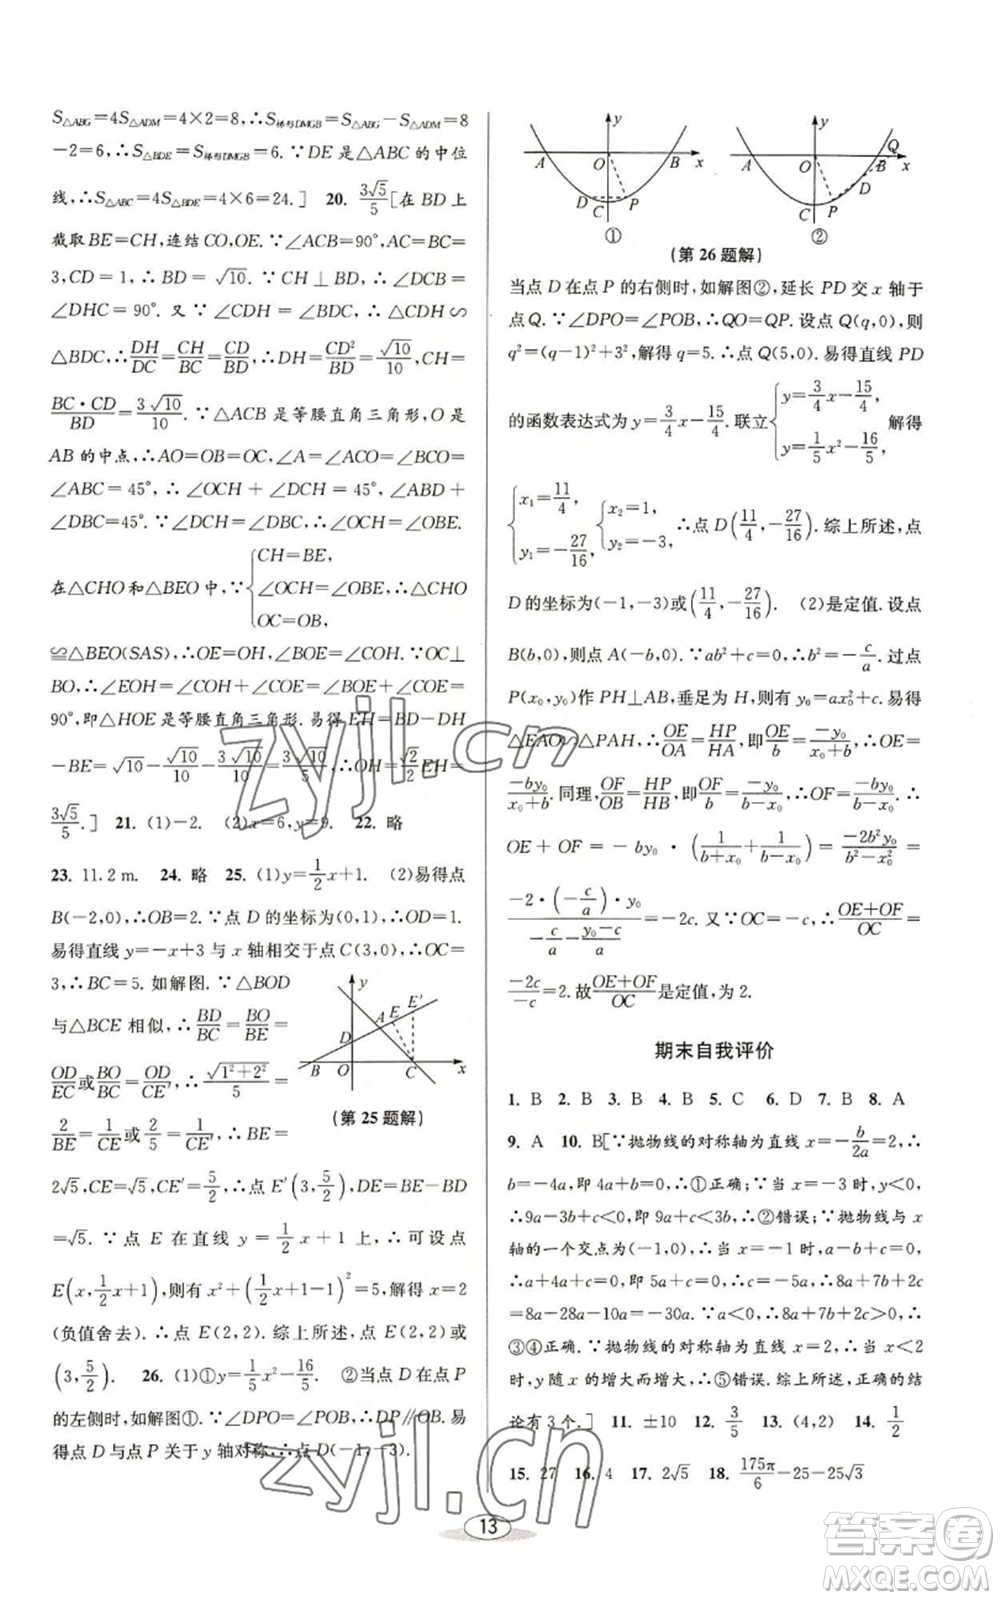 S△ABG=4S△ADM=4×2=8,∴S梯形DMGB=S△ABG-S△ADM=8
-2=6,∴S△BDE=S梯形DMGB=6.∵DE是△ABC的中位
线,∴S△ABC=4S△BDE=4×6=24.] 20. 3√5/5[在BD上
截取BE=CH,连结CO,OE.∵∠ACB=90°,AC=BC=
3,CD=1,∴BD=√10.∵CH⊥BD,∴∠DCB=
∠DHC=90°.又∵∠CDH=∠BDC,∴△CDH∽
△BDC,∴DH/DC=CH/BC=CD/BD,∴DH=CD²/BD=√10/10,CH=
BC·CD/BD=3√10/10.∵△ACB是等腰直角三角形,O是
AB的中点,∴AO=OB=OC,∠A=∠ACO=∠BCO=
∠ABC=45°,∴∠OCH+∠DCH=45°,∠ABD+
∠DBC=45°.∵∠DCH=∠DBC,∴∠OCH=∠OBE.
在△CHO和△BEO中,∵{CH=BE,
∠OCH=∠OBE,∴△CHO
OC=OB,
≌△BEO(SAS),∴OE=OH,∠BOE=∠COH.∵OC⊥
BO,∴∠EOH=∠COH+∠COE=∠BOE+∠COE=
90°,即△HOE是等腰直角三角形.易得EH=BD-DH
-BE=√10-√10/10-3√10/10=3√10/5,∴OH=√2/2EH=
3√5/5.] 21. (1)-2. (2)x=6,y=9. 22. 略
23. 11.2 m. 24. 略 25. (1)y=1/2x+1. (2)易得点
B(-2,0),∴OB=2.∵点D的坐标为(0,1),∴OD=1.
易得直线y=-x+3与x轴相交于点C(3,0),∴OC=
3,∴BC=5.如解图.∵△BOD
与△BCE相似,∴BD/BC=BO/BE=
OD/EC或BO/BC=OD/CE′,∴√(1²+2²)/5=
2/BE=1/CE或2/5=1/CE′,∴BE=
2√5,CE=√5,CE′=5/2,∴点E′(3,5/2),DE=BE-BD
=√5.∵点E在直线y=1/2x+1上,∴可设点
E(x,1/2x+1),则有x²+(1/2x+1-1)²=5,解得x=2
(负值舍去).∴点E(2,2).综上所述,点E(2,2)或
(3,5/2). 26. (1)①y=1/5x²-16/5 ②当点D在点P
的左侧时,如解图①.∵∠DPO=∠POB,∴DP∥OB.易
得点D与点P关于y轴对称,∴点D(-1,-3).
y
A
E
E′
D
B
O
C
x
(第25题解)
y
A
O
B
x
D
C
P
①
y
A
O
B
Q
x
D
C
P
②
(第26题解)
当点D在点P的右侧时,如解图②,延长PD交x轴于
点Q.∵∠DPO=∠POB,∴QO=QP.设点Q(q,0),则
q²=(q-1)²+3²,解得q=5.∴点Q(5,0).易得直线PD
的函数表达式为y=3/4x-15/4.联立{y=3/4x-15/4, y=1/5x²-16/5 解得
{x₁=11/4, y₁=-27/16, {x₂=1, y₂=-3, ∴点D(11/4,-27/16).综上所述,点
D的坐标为(-1,-3)或(11/4,-27/16). (2)是定值.设点
B(b,0),则点A(-b,0).∵ab²+c=0,∴b²=-c/a.过点
P(x₀,y₀)作PH⊥AB,垂足为H,则有y₀=ax₀²+c.易得
△EAO∽△PAH,∴OE/OA=HP/HA,即OE/b=-y₀/(x₀+b),∴OE=
-by₀/(x₀+b).同理,OF/OB=HP/HB,即OF/b=-y₀/(b-x₀),∴OF=-by₀/(b-x₀).∴
OE+OF=-by₀·(1/(b+x₀)+1/(b-x₀))=-2b²y₀/(b²-x₀²)=
-2·(-c/a)·y₀/(-c/a-(y₀-c)/a)=-2c.又∵OC=-c,∴(OE+OF)/OC=
-2c/-c=2.故(OE+OF)/OC是定值,为2.
期末自我评价
1. B 2. B 3. B 4. B 5. C 6. D 7. B 8. A
9. A 10. B[∵抛物线的对称轴为直线x=-b/2a=2,∴
b=-4a,即4a+b=0,∴①正确;∵当x=-3时,y<0,
∴9a-3b+c<0,即9a+c<3b,∴②错误;∵抛物线与x
轴的一个交点为(-1,0),∴当x=-1时,a-b+c=0,
∴a+4a+c=0,即5a+c=0,∴c=-5a,∴8a+7b+2c
=8a-28a-10a=-30a.∵a<0,∴8a+7b+2c>0,∴
③④正确.∵抛物线的对称轴为直线x=2,∴当x<2
时,y随x的增大而增大,∴⑤错误.综上所述,正确的结
论有3个.] 11. ±10 12. 3/5 13. (4,2) 14. 1/2
15. 27 16. 4 17. 2√5 18. 175π/6-25-25√3
13
zyjl.cn
zyjl.cn
答案卷
MXQE.COM